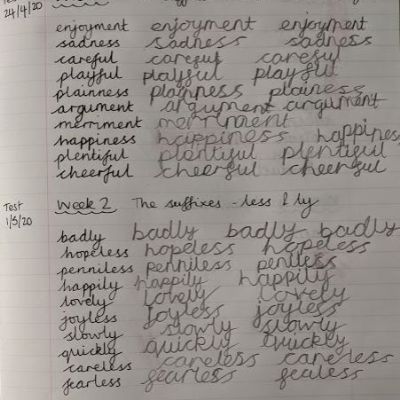 24/4/20
enjoyment enjoyment enjoyment
sadness sadness sadness
careful careful careful
playful playful playful
plainness plainness plainess
argument argument argument
merriment merriment
happiness happiness happiness
plentiful plentiful plentiful
cheerful cheerful cheerful
Test Week 2 The suffixes -less & ly
1/5/20
badly badly badly badly
hopeless hopeless hopeless
penniless penniless penless
happily happily happily
lovely lovely lovely
joyless joyless joyless
slowly slowly slowly
quickly quickly quickly
careless careless careless
fearless fearless fealess